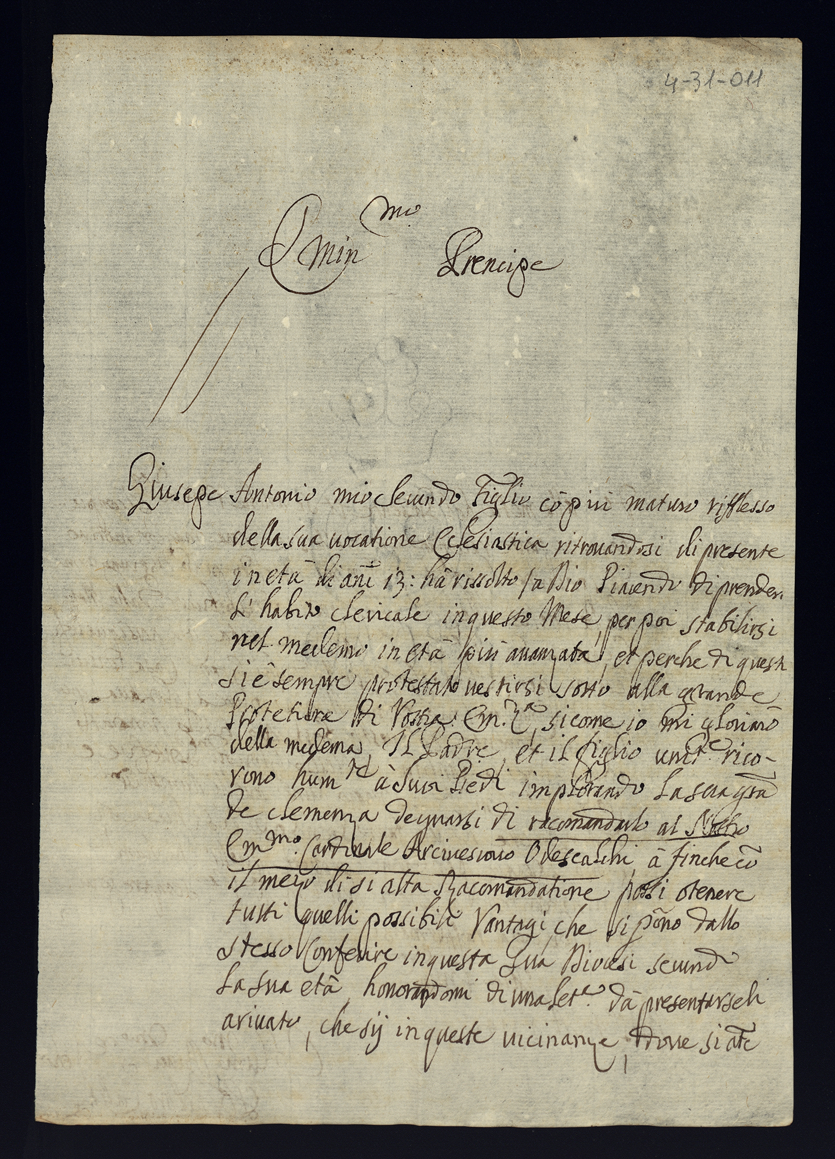 4-31-011
Emin.mo Prencipe
Giusepe Antonio mio secundo Figlio cõ piu maturo riflesso
della sua vocatione Eclesiastica ritrovandosi di presente
in età di ani 13: hà rissolto /a Dio Piacendo di prender
L'habito clericale in questo Mese, per poi stabilirsi
nel medemo in età piu avanzata, et perche di questi
si è sempre protestato vestirsi sotto alla grande
Protetione di Vostra Em.za, si come io mi glorian̄o
della medema, Il Padre, et il figlio unit.e rico-
rono hum.te à Suoi Piedi implorando La sua gran̄
de clemenza degnarsi di racomandarlo al Nostro
Em.mo Cardinale Arcivescovo Odescalchi, à finche cõ
il mezo di si alta Racomandatione possi otenere
tutti quelli possibili Vantagi che si pōno dallo
stesso Conferire in questa Sua Diocesi secundo
La sua età, honorandomi di una let.a dà presentarseli
arivato, che sij in queste vicinanze, dove si ate